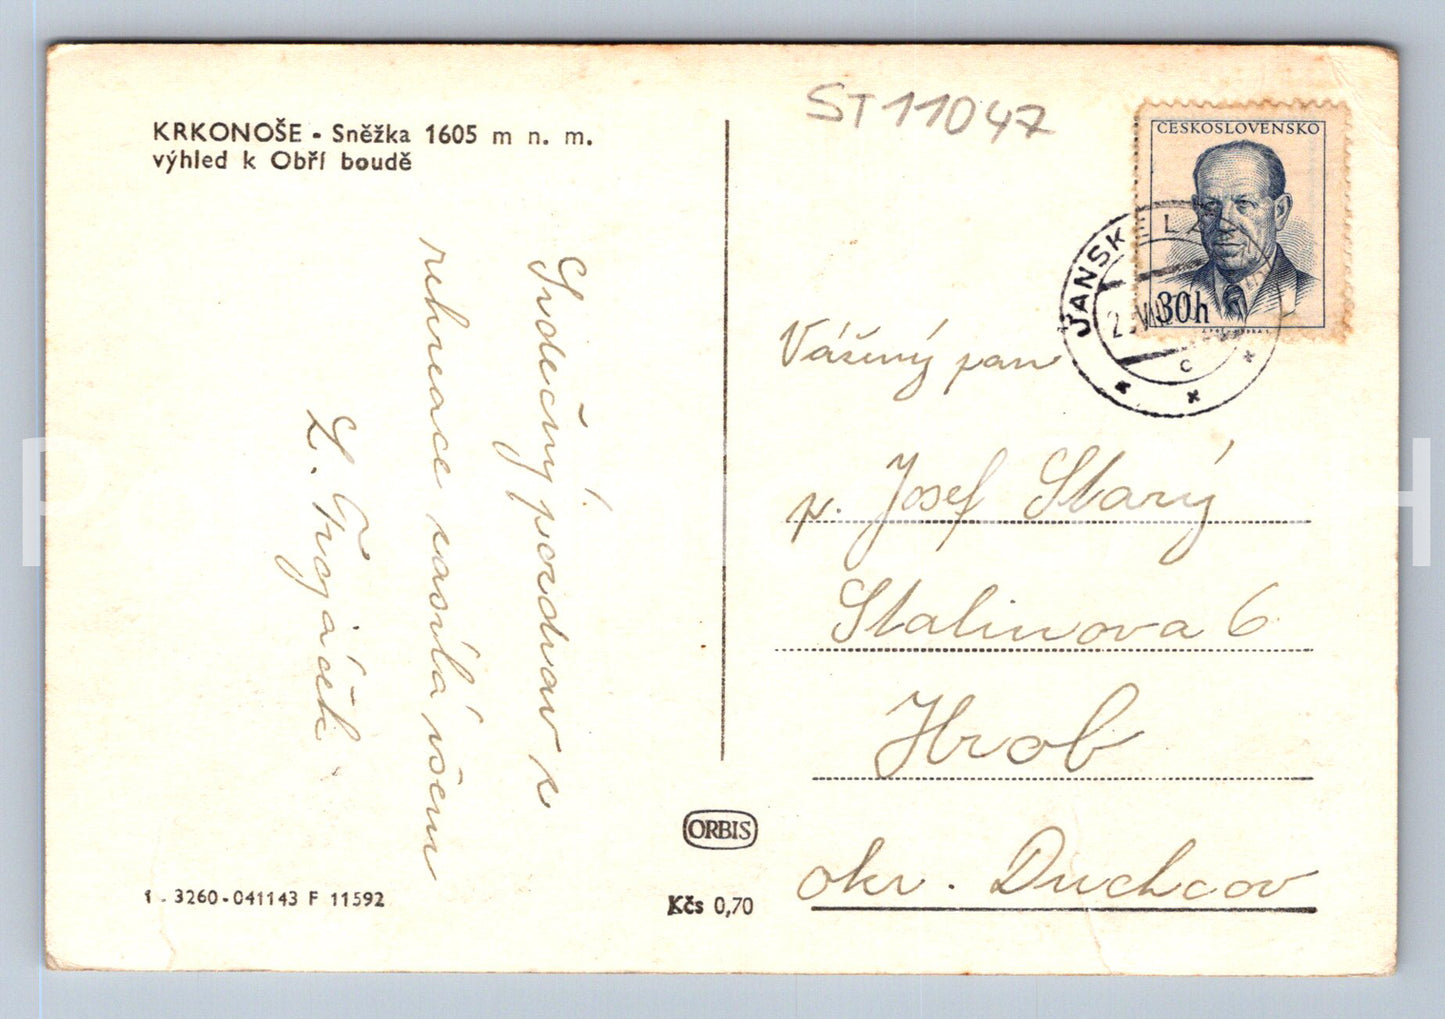 KRKONOŠE - Sněžka 1605 m n. m.
výhled k Obří boudě
ST 11047
ČESKOSLOVENSKO
30h
JANSKÉ LÁ
Srdečný pozdrav z
rekreace zasílá všem
L. Trojáček
Vážený pan
p. Josef Starý
Stalinova 6
Hrob
okr. Duchcov
ORBIS
Kčs 0,70
1 - 3260-041143 F 11592